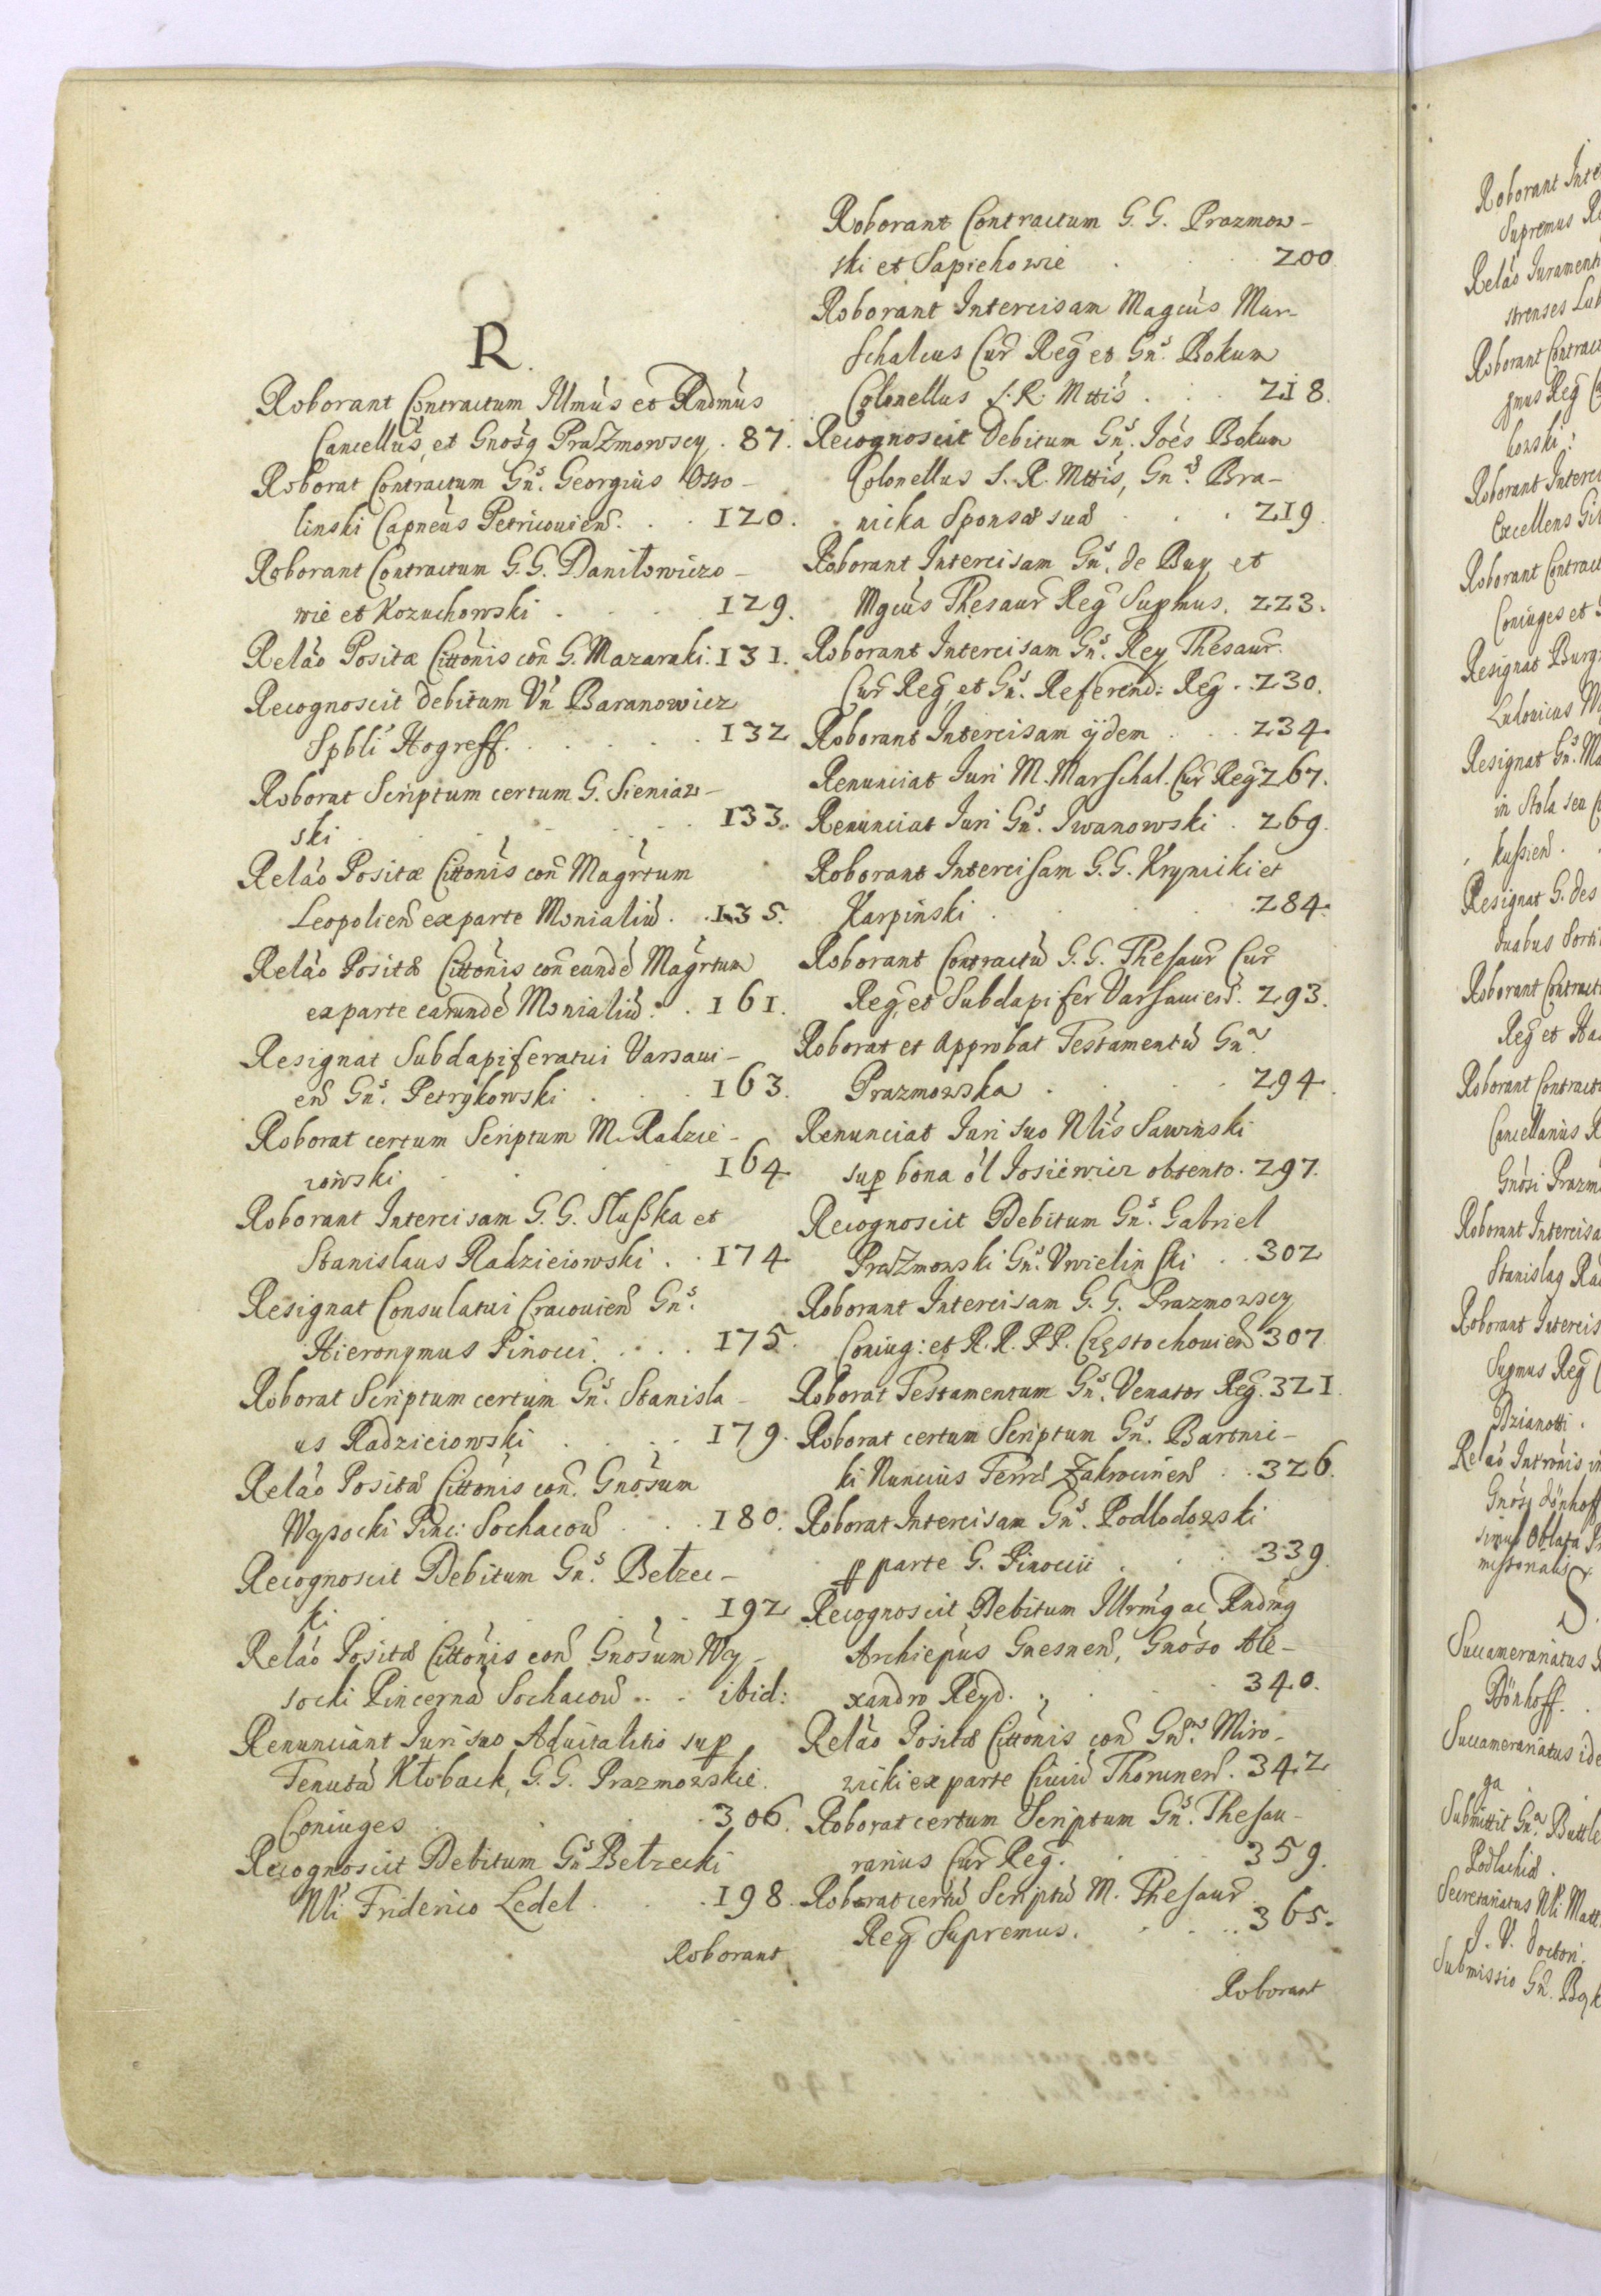 R.
Roborant Contractum Illmús et Rndmús
Cancellús, et Gnosq Prazmowscy . 87.
Roborat Contractum Gńs. Georgius Osso-
linski Capneús Petricouień . . . 120.
Roborant Contractum G.G. Daniłowiczo-
wie et Kozuchowski . . . 129.
Relaó Positæ Cittónis coń G. Mazaraki. 131.
Recognoscit debitum Vń Baranowicz
Spbli Hogreff. . . . . . 132
Roborat Scriptum certum G. Sieniaw-
ski . . . . . 133.
Relaó Positæ Cittónis coń Magŕtum
Leopolień ex parte Monialiú . . 135.
Relaó Positæ Cittónis coń eundé Magŕtum
ex parte earundé Monialiú . . 161.
Resignat Subdapiferatui Varsaui-
eń Gńs. Petrykowski . . . 163.
Roborat certum Scriptum M. Radzie-
iowski . . . . 164
Roborant Intercisam G.G. Słußka et
Stanislaus Radzieiowski . . 174
Resignat Consulatui Cracouień Gńs.
Hieronymus Pinocci. . . . . 175.
Roborat Scriptum certum Gńs. Stanisla-
us Radzieiowski . . . . 179.
Relaó Positæ Cittónis coń. Gnosum
Wysocki Pinc: Sochacoú . . . 180.
Recognoscit Debitum Gńs. Bełzec-
ki . . . . . 192
Relaó Positæ Cittónis coń Gnosum Wy-
socki Pincerná Sochacoú . . . ibid:
Renunciant Juri suo Aduitalitio sup
Tenutá Kłoback, G.G. Prazmowskie
Coniuges . . . 306.
Recognoscit Debitum Gńs Bełzecki
Nli Friderico Ledel . . . 198.
Roborant
Roborant Contractum G.G. Prazmow-
ski et Sapiehowie . . . 200
Roborant Intercisam Magcús Mar-
schalcus Cur Reg et Gńs. Bokum
Colonellus S.R. Mttis . . . 218.
Recognoscit Debitum Gńs. Joés Bokum
Colonellus S.R. Mttis, Gnæ. Bra-
nicka Sponsæ suæ . . . 219.
Roborant Intercisam Gńs. de Buy et
Mgcús Thesaur Reg Supmus. 223.
Roborant Intercisam Gńs. Rey Thesaur.
Cur Reg, et Gńs. Referend: Reg . . 230.
Roborant Intercisam ijdem . . . 234.
Renunciat Juri M. Marschal. Cur Reg 267.
Renunciat Juri Gńs. Iwanowski . 269.
Roborant Intercisam G.G. Krynicki et
Karpiński . . . . 284.
Roborant Contractú G.G. Thesaur Cur
Reg, et Subdapifer Varsauień. 293.
Roborat et Approbat Testamentú Gna.
Prazmowska . . . . 294.
Renunciat Juri suo Nlis Sawinski
sup bona ol Josiewicz obtento . 297.
Recognoscit Debitum Gńs. Gabriel
Prazmowski Gńs. Vwielinski . . 302
Roborant Intercisam G.G. Prazmowscy
Coniug: et R.R.P.P. Częstochouień 307
Roborat Testamentum Gńs. Venator Reg. 321.
Roborat certum Scriptum Gńs. Bartnic-
ki Nuncius Terræ Zakrocineń . . 326.
Roborat Intercisam Gńs. Podlodowski
p parte G. Pinoccii . . . 339.
Recognoscit Debitum Illrmg ac Rndmg
Archiepús Gnesneń, Gnóso Ale-
xandro Reyd. . . . 340.
Relaó Positæ Cittónis coń Gnm. Miro-
wicki ex parte Ciuiú Thoruneń. 342
Roborat certum Scriptum Gńs. Thesau-
rarius Cur Reg. . . . 359.
Roborat certú Scriptú M. Thesaur
Reg Supremus. . . . . 365.
Roborant
Roborant Inte
Supremus
Relaó Jurament
strenses Lub
Roborant Contrac
gmus Reg
bowski.
Roborant Interci
Excellens
Roborant Contract
Coniuges et
Resignat Burg
Ludouicus
Resignat Gńs.
in Stola seu
Resignat G. des
duabus Sorti
Roborant Contract
Reg et
Roborant Contract
Cancellarius
Gnósi Prazm
Roborant Intercisa
Stanislag Ra
Roborant Intercis
Supmus Reg
Dzianotti.
Relaó
Gnósq Dönhoff
simul Oblata
S.
Succameranatus
Dönhoff.
Succameranatus ide
ga
Submittit Gna. Buttle
Podlachiæ.
Secretariatus Nli Matt
J. V. Doctori.
Submissio Gń.